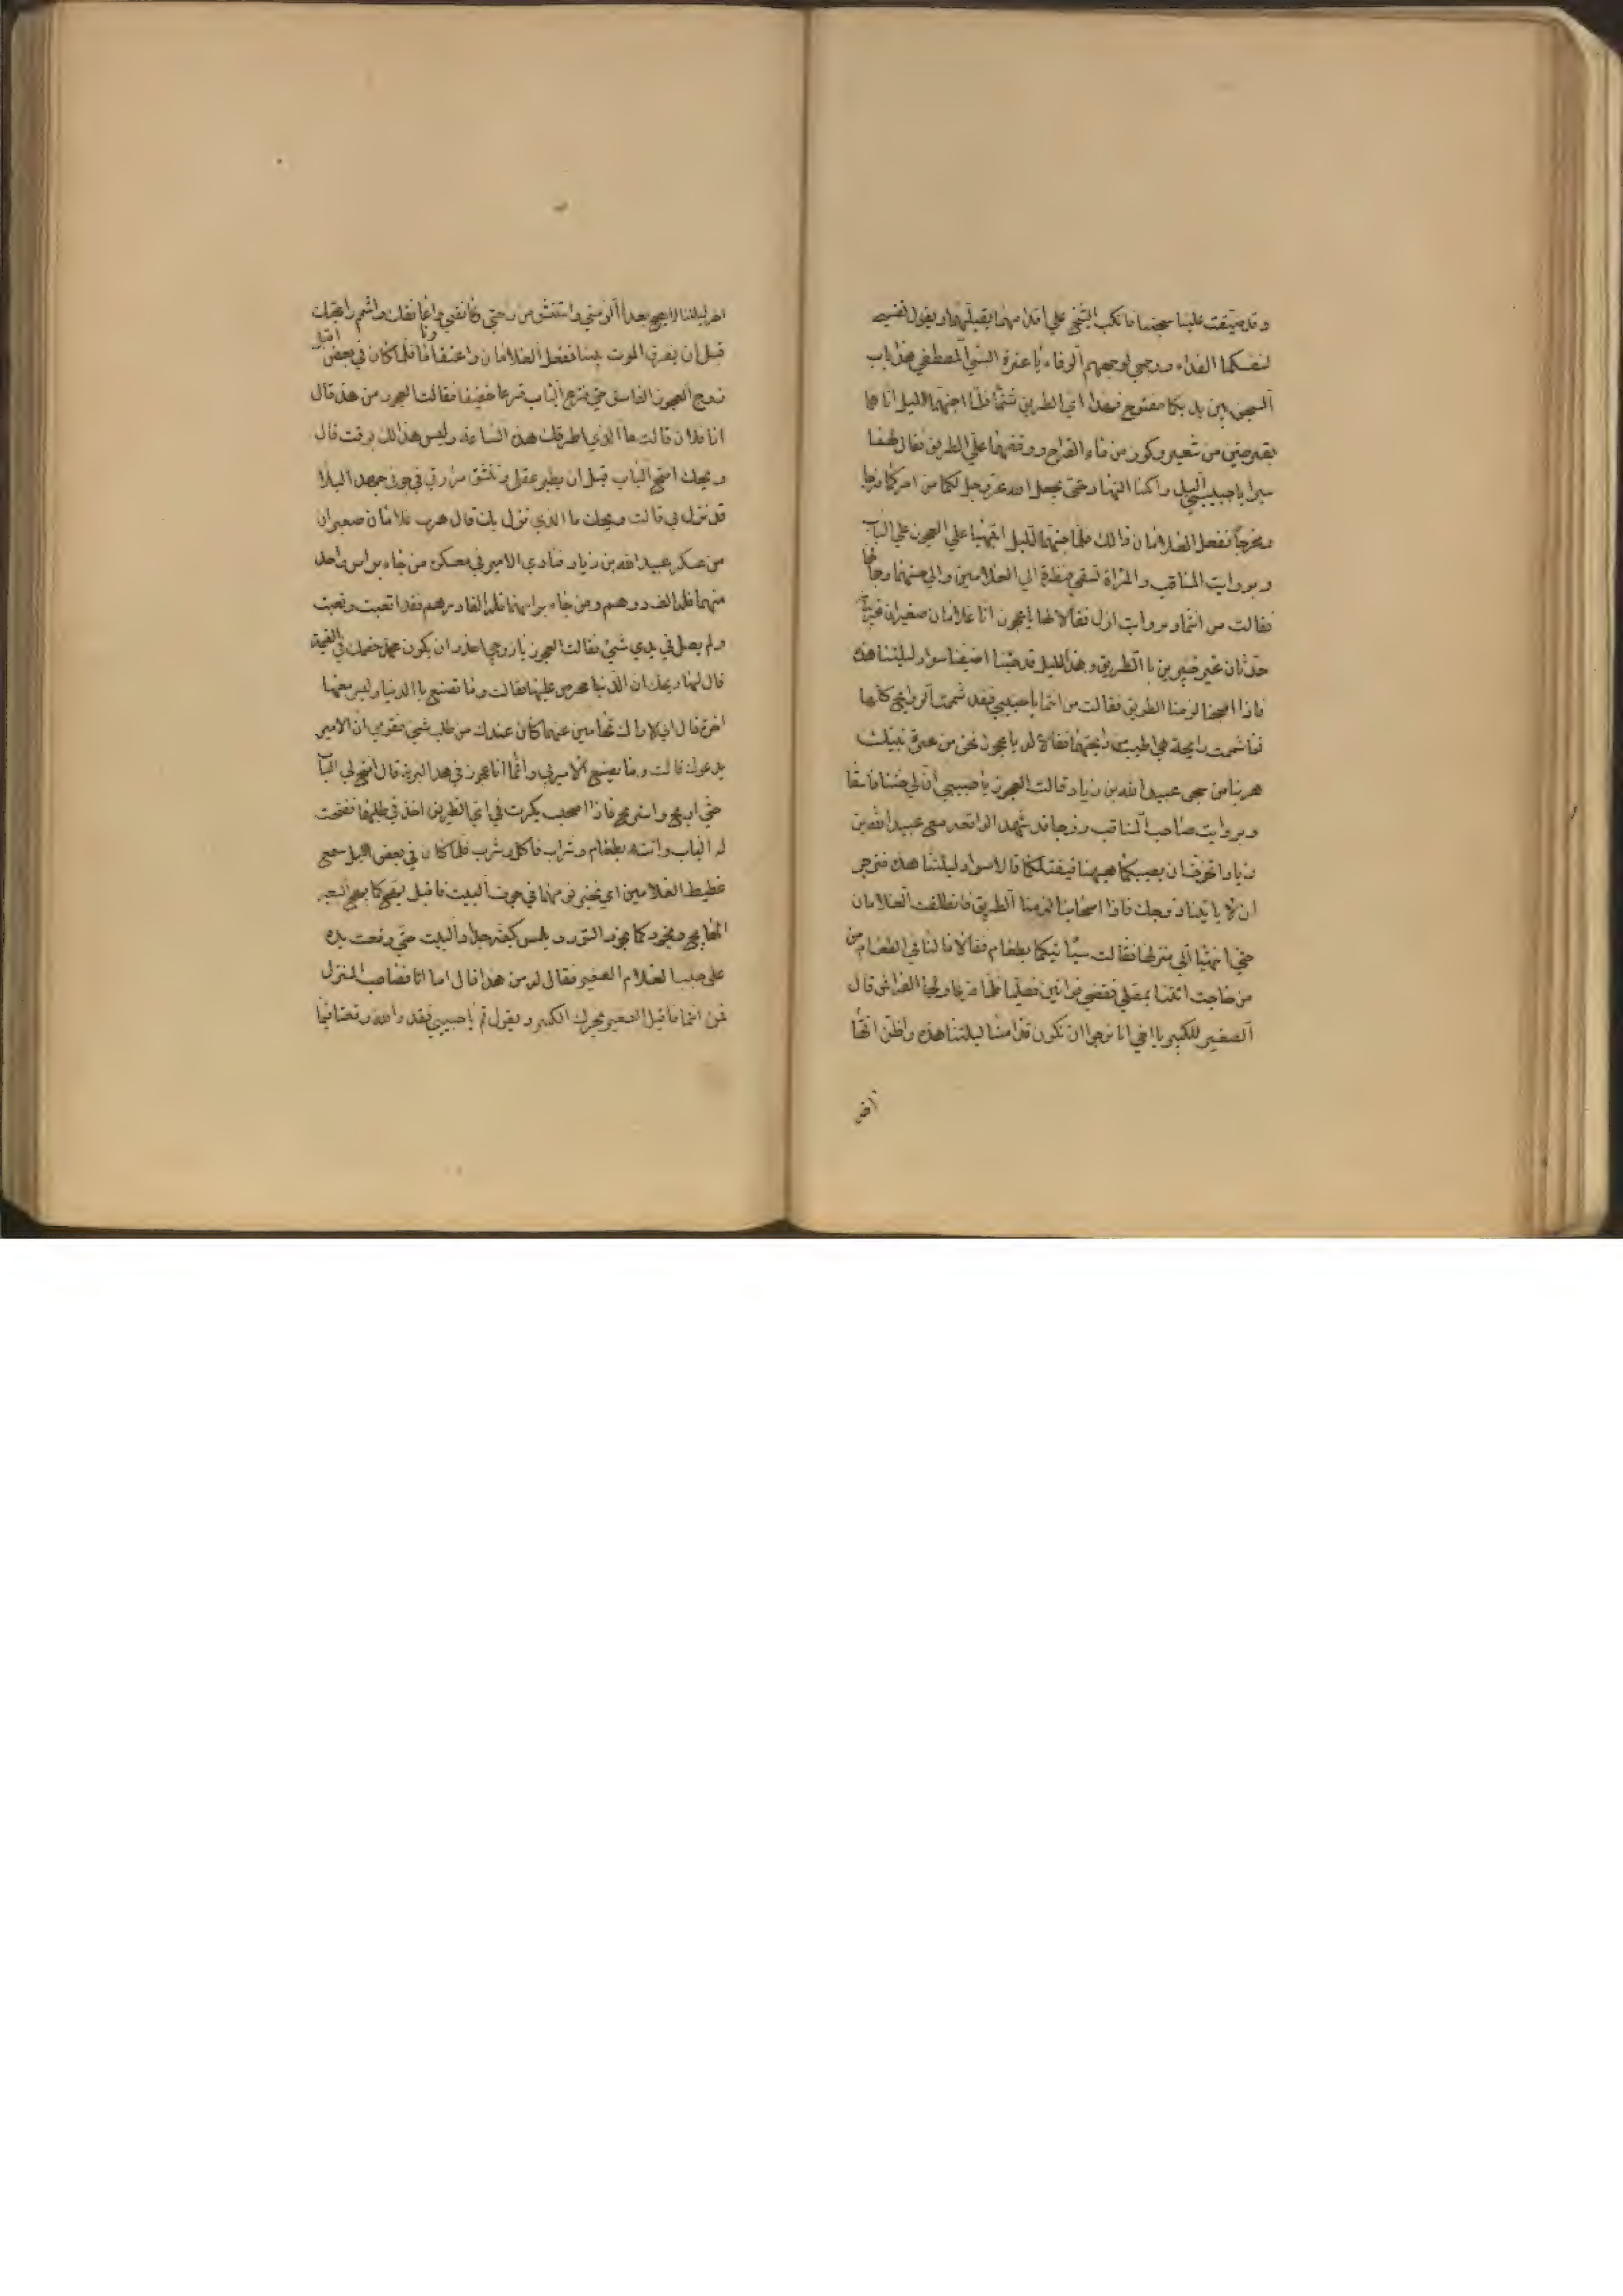 وقد ضيقت علينا سجننا فانكب الشيخ علي اقدامهما يقبلهما ويقول نفسي
لنفسكما الفداء ووجهي لوجهكم الوقاء يا عترة النبي المصطفي هذا باب
السجن بين يديكما مفتوح فخذا اي الطريق شئتما فلما اجنهما الليل اتاهما
بقرصين من شعير وكوز من ماء القراح ووقفهما علي الطريق فقال لهما
سيرا يا حبيبي الليل واكمنا النهار حتى يجعل الله عز وجل لكما من امركما فرجا
ومخرجا ففعل الغلامان ذالك فلما جنهما الليل انتهيا علي العجوز علي الباب
وبروايت المناقب والمراة تسقي فنظرة الي الغلامين والي حسنهما وجمالهما
فقالت من انتما وبروايت اول فقالا لها يا عجوز انا غلامان صغيران غريبان
حدثان غير خبيرين با الطريق وهذا الليل قد جننا اضيفنا سواد ليلتنا هذه
فاذا اصبحنا لزمنا الطريق فقالت من انتما يا حبيبي فقد شممت الروايح كلها
فما شممت رايحة هي اطيب من رايحتكما فقالا لها يا عجوز نحن من عترة نبيك
هربنا من سجن عبيد الله بن زياد قالت العجوز يا حبيبي ان لي ختنا فاسقا
وبروايت صاحب المناقب وزوجا قد شهد الواقعه مع عبيد الله بن
زياد اتخوف ان يصيبكما هيهنا فيقتلكما قالا سواد ليلتنا هذه فنرجو
ان لا ياتينا زوجك فاذا اصبحنا لزمنا الطريق فانطلقت الغلامان
حتي انتهيا الي منزلها فقالت سياتيكما بطعام فقالا ما لنا في الطعام من
من حاجت ائتنا بمصلي نقضي فوائتنا فصليا فلما فرغا ولجا الفراش قال
الصغير للكبير يا اخي انا نرجو ان نكون قد امنا ليلتنا هذه واظن انها
اخر ليلتنا
قبل ان يفرق الموت بيننا ففعل الغلامان واعتنقا وناما فلما كان في بعض الليل اقبل
زوج العجوز الفاسق حتي قرع الباب قرعا خفيفا فقالت العجوز من هذا قال
انا فلان قالت ما الذي اطرقك هذه الساعة وليس هذا لك بوقت قال
ويحك افتح الباب قبل ان يطير عقلي وتنشق مرارتي في جوفي جهد البلاء
قد نزل بي قالت ويحك ما الذي نزل بك قال هرب غلامان صغيران
من عسكر عبيد الله بن زياد فنادي الامير في معسكره من جاء براس واحد
منهما فله الف درهم ومن جاء براسهما فله الفا درهم فقد اتعبت وتعبت
ولم يصل في يدي شيئ فقالت العجوز يا زوجي احذر ان يكون محمد خصمك في القيمة
قال لها ويحك ان الدنيا محرص عليها فقالت وما تصنع با الدنيا وليس معها
اخرة قال اني لاراك تحامين عنهما كان عندك من طلب شيئ فقومي ان الامير
يدعوك قالت وما يصنع الامير بي وانما انا عجوز في هذه البرية قال افتح لي الباب
حتي اريح واستريح فاذا اصبحت بكرت في اي الطريق اخذ في طلبهما ففتحت
له الباب واتته بطعام وشراب فاكل وشرب فلما كان في بعض الليل سمع
غطيط الغلامين اي نخير نومهما في جوف البيت فاقبل يهيج كما يهيج البعير
الهايج ويخور كما يخور الثور ويلمس بكفه جدار البيت حتي وقعت يده
علي جنب الغلام الصغير فقال له من هذا قال اما انا فصاحب المنزل
فمن انتما فاقبل الصغير يحرك الكبير ويقول قم يا حبيبي فقد والله وقعنا فيما